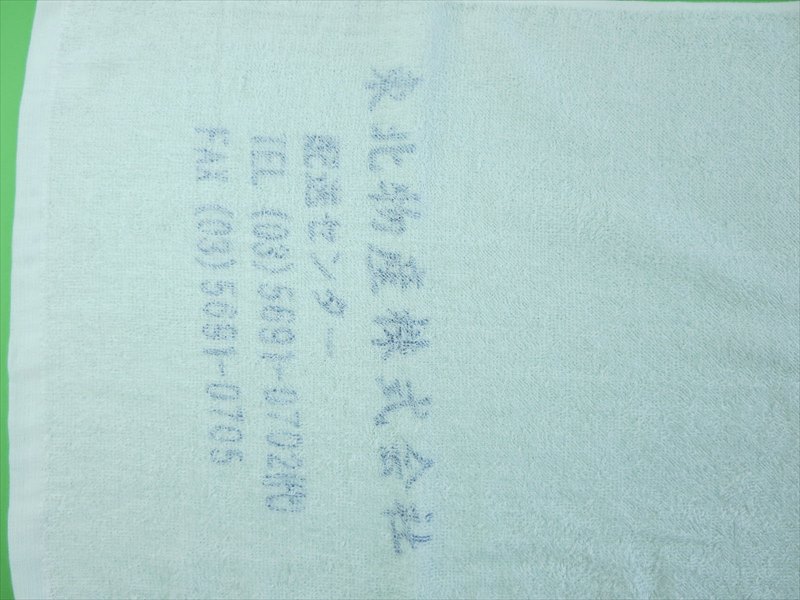 東北物産株式会社
配送センター
TEL (03)5691-0702㈹
FAX (03)5691-0705